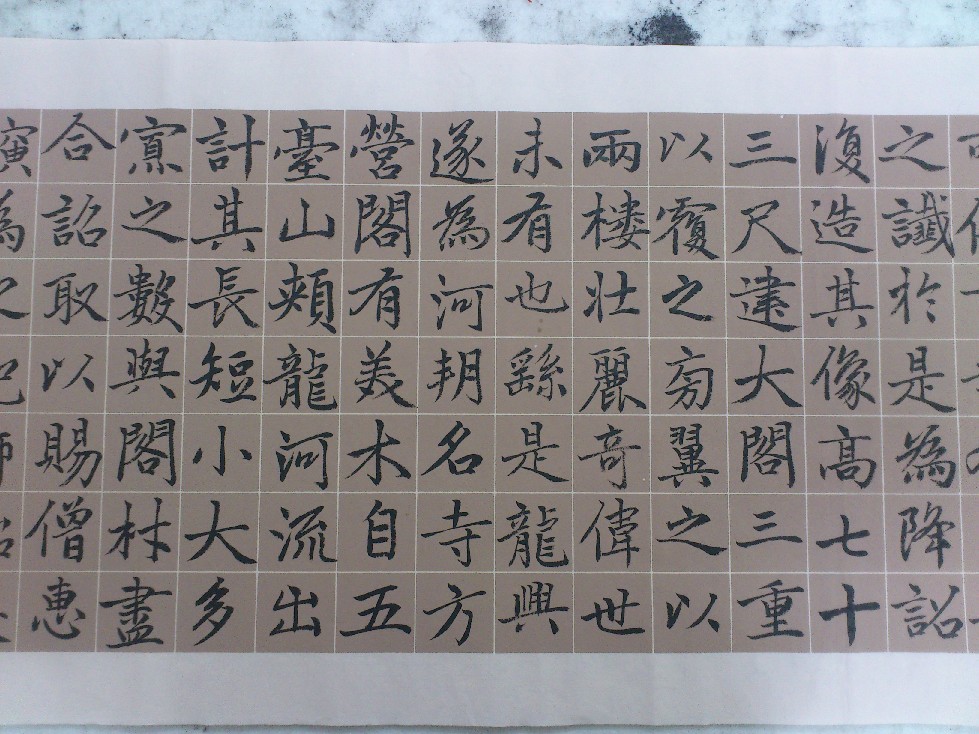 之讖於是為降詔
復造其像高七十
三尺建大閣三重
以覆之旁翼之以
兩楼壯麗奇偉世
未有也繇是龍興
遂為河朔名寺方
營閣有美木自五
臺山頰龍河流出
計其長短小大多
寡之數與閣材盡
合詔取以賜僧惠